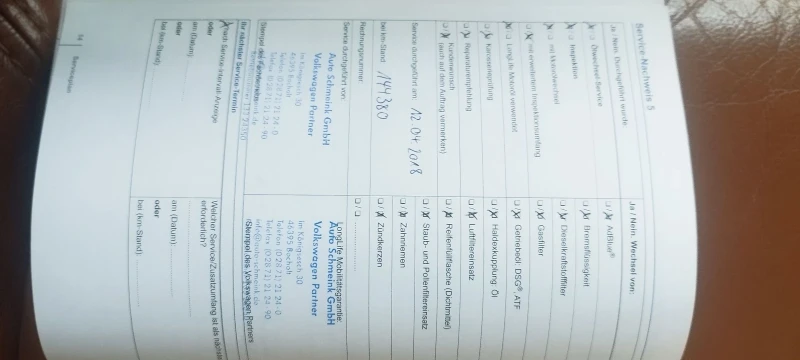 Service Nachweis 5
Ja / Nein Durchgeführt wurde:
Ölwechsel-Service
Inspektion
mit Motorölwechsel
mit erweitertem Inspektionsumfang
LongLife Motoröl verwendet
Karosserieprüfung
Reparaturempfehlung
Kundenwunsch
(auch auf dem Auftrag vermerken)
Service durchgeführt am: 12.04.2018
bei km-Stand: 144380
Rechnungsnummer:
Service durchgeführt von:
Auto Schmeink GmbH
Volkswagen Partner
Im Königsesch 30
46395 Bocholt
Telefon (0 28 71) 21 24 - 0
Telefax (0 28 71) 21 24 - 90
Ihr nächster Service-Termin
nach Service-Intervall-Anzeige
oder
am (Datum):
oder
bei (km-Stand):
Ja / Nein Wechsel von:
AdBlue®
Bremsflüssigkeit
Dieselkraftstofffilter
Gasfilter
Getriebeöl: DSG® ATF
Haldexkupplung: Öl
Luftfiltereinsatz
Reifenfüllflasche (Dichtmittel)
Staub- und Pollenfiltereinsatz
Zahnriemen
Zündkerzen
LongLife Mobilitätsgarantie:
Auto Schmeink GmbH
Volkswagen Partner
Im Königsesch 30
46395 Bocholt
Telefon (0 28 71) 21 24 - 0
Telefax (0 28 71) 21 24 - 90
info@auto-schmeink.de
Stempel des Volkswagen Partners
Welcher Service/Zusatzumfang ist als
erforderlich?
am (Datum):
oder
bei (km-Stand):
14 Serviceplan